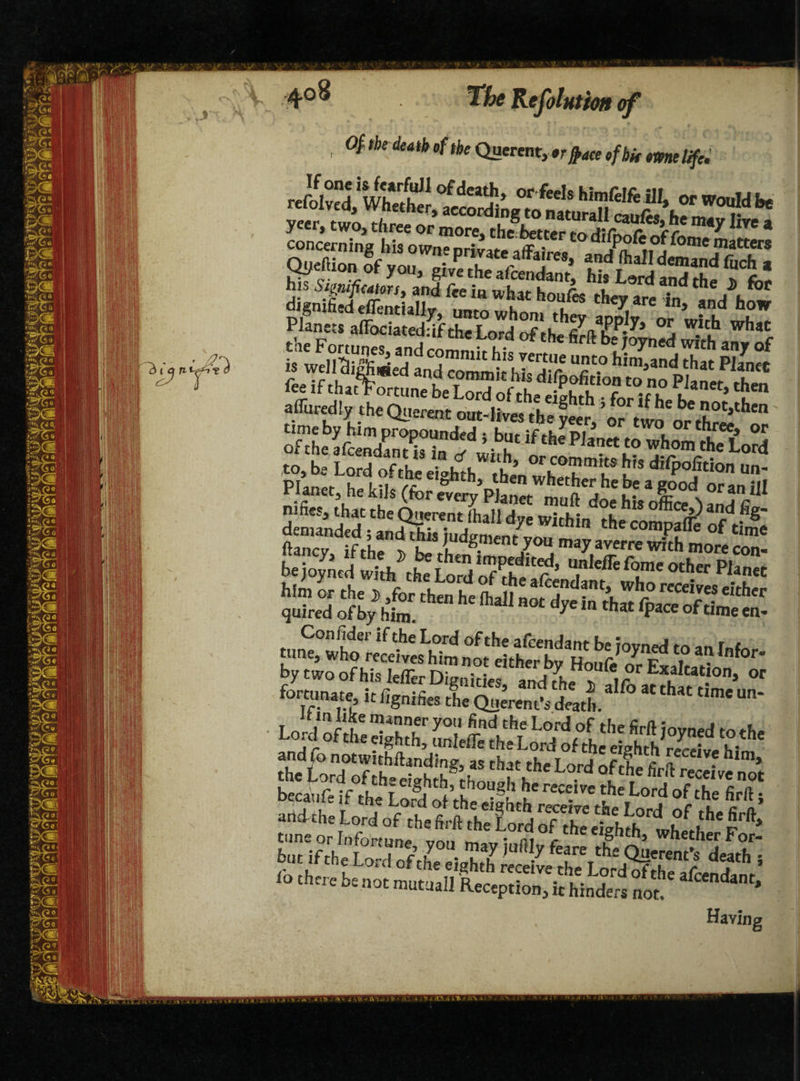 408 The Resolution of
Of the death of the Querent, or space of his owne life.
If one is fearfull of death, or feels himselfe ill, or would be
resolved, Whether, according to naturall causes, he may live a
yeer, two, three or more, the better to dispose of some matters
concerning his owne private affaires, and shall demand such a
Question of you, give the ascendant, his Lord and the ☽ for
his Significators, and see in what houses they are in, and how
dignified essentially, unto whom they apply, or with what
Planets associated: if the Lord of the first be joyned with any of
the Fortunes, and commit his vertue unto him, and that Planet
is well dignified and commit his disposition to no Planet, then
see if that Fortune be Lord of the eighth; for if he be not, then
assuredly the Querent out-lives the yeer, or two or three, or
time by him propounded; but if the Planet to whom the Lord
of the ascendant is in ☌ with, or commits his disposition un-
to, be Lord of the eighth, then whether he be a good or an ill
Planet, he kils (for every Planet must doe his office,) and sig-
nifies, that the Querent shall dye within the compasse of time
demanded; and this judgment you may averre with more con-
stancy, if the ☽ be then impedited, unlesse some other Planet
be joyned with the Lord of the ascendant, who receives either
him or the ☽, for then he shall not dye in that space of time en-
quired of by him.
Consider if the Lord of the ascendant be joyned to an Infor-
tune, who receives him not either by House or Exaltation, or
by two of his lesser Dignities, and the ☽ also at that time un-
fortunate, it signifies the Querent's death.
If in like manner you find the Lord of the first joyned to the
Lord of the eighth, unlesse the Lord of the eighth receive him,
and so notwithstanding, as that the Lord of the first receive not
the Lord of the eighth, though he receive the Lord of the first;
because if the Lord of the eighth receive the Lord of the first,
and the Lord of the first the Lord of the eighth, whether For-
tune or Infortune, you may justly feare the Querent's death;
but if the Lord of the eighth receive the Lord of the ascendant,
so there be not mutuall Reception, it hinders not.
Having